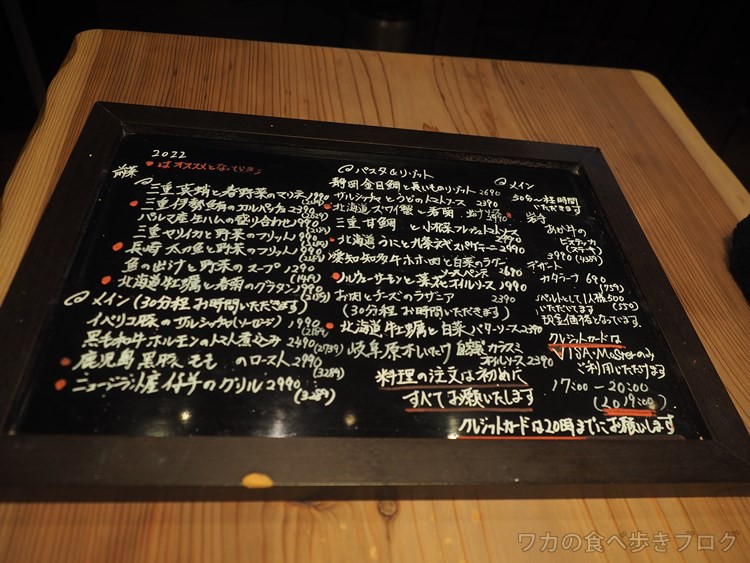 2022
●はオススメとなっています
前菜
三重 真蛸と春野菜のマリネ 1990
三重 伊勢鯛のカルパッチョ 2390
パルマ産生ハムの盛り合わせ 1990
三重マリイカと野菜のフリット 1990
長崎 太刀魚と野菜のフリット 1990
魚の出汁と野菜のスープ 1290
北海道牡蠣と春雨のグラタン 1990
◎メイン (30分程お時間いただきます)
イベリコ豚のサルシッチャ(ソーセージ) 1990
黒毛和牛ホルモンのトマト煮込み 2490 (2739)
鹿児島 黒豚 モモ のロースト 2990
(3289)
ニュージーランド産 仔羊のグリル 2990
(3289)
◎パスタ&リゾット
静岡 金目鯛と長いものリゾット 2690
サルシッチャとうどのトマトソース 2390
北海道 ズワイ蟹と春雨
三重 甘鯛 と小松菜 フレッシュトマトソース
北海道うにと九条ネギスパゲティーニ 2990
愛知知多牛ホホ肉と白菜のラグー
2690
サーモンと菜花オイルソース 1990
お肉とチーズのラザニア 2390
(30分程お時間いただきます)
北海道牡蠣と白菜バターソース 2390
岐阜 原木しいたけ カラスミ
オイルソース 2390
料理の注文は初めに
すべてお願いたします
クレジットカードは20時までにお願いします
◎メイン
30分〜程時間
いただきます
あか牛の
ビステッカ
(ステーキ)
3990 (4389)
デザート
カタラーナ 690
(759)
パンとして1人様 500
いただいてます (550)
現金価格となっています。
クレジットカードは
VISA・Masterのみ
ご利用いただけます
17:00-20:00
(LO19:00)
ワカの食べ歩きブログ